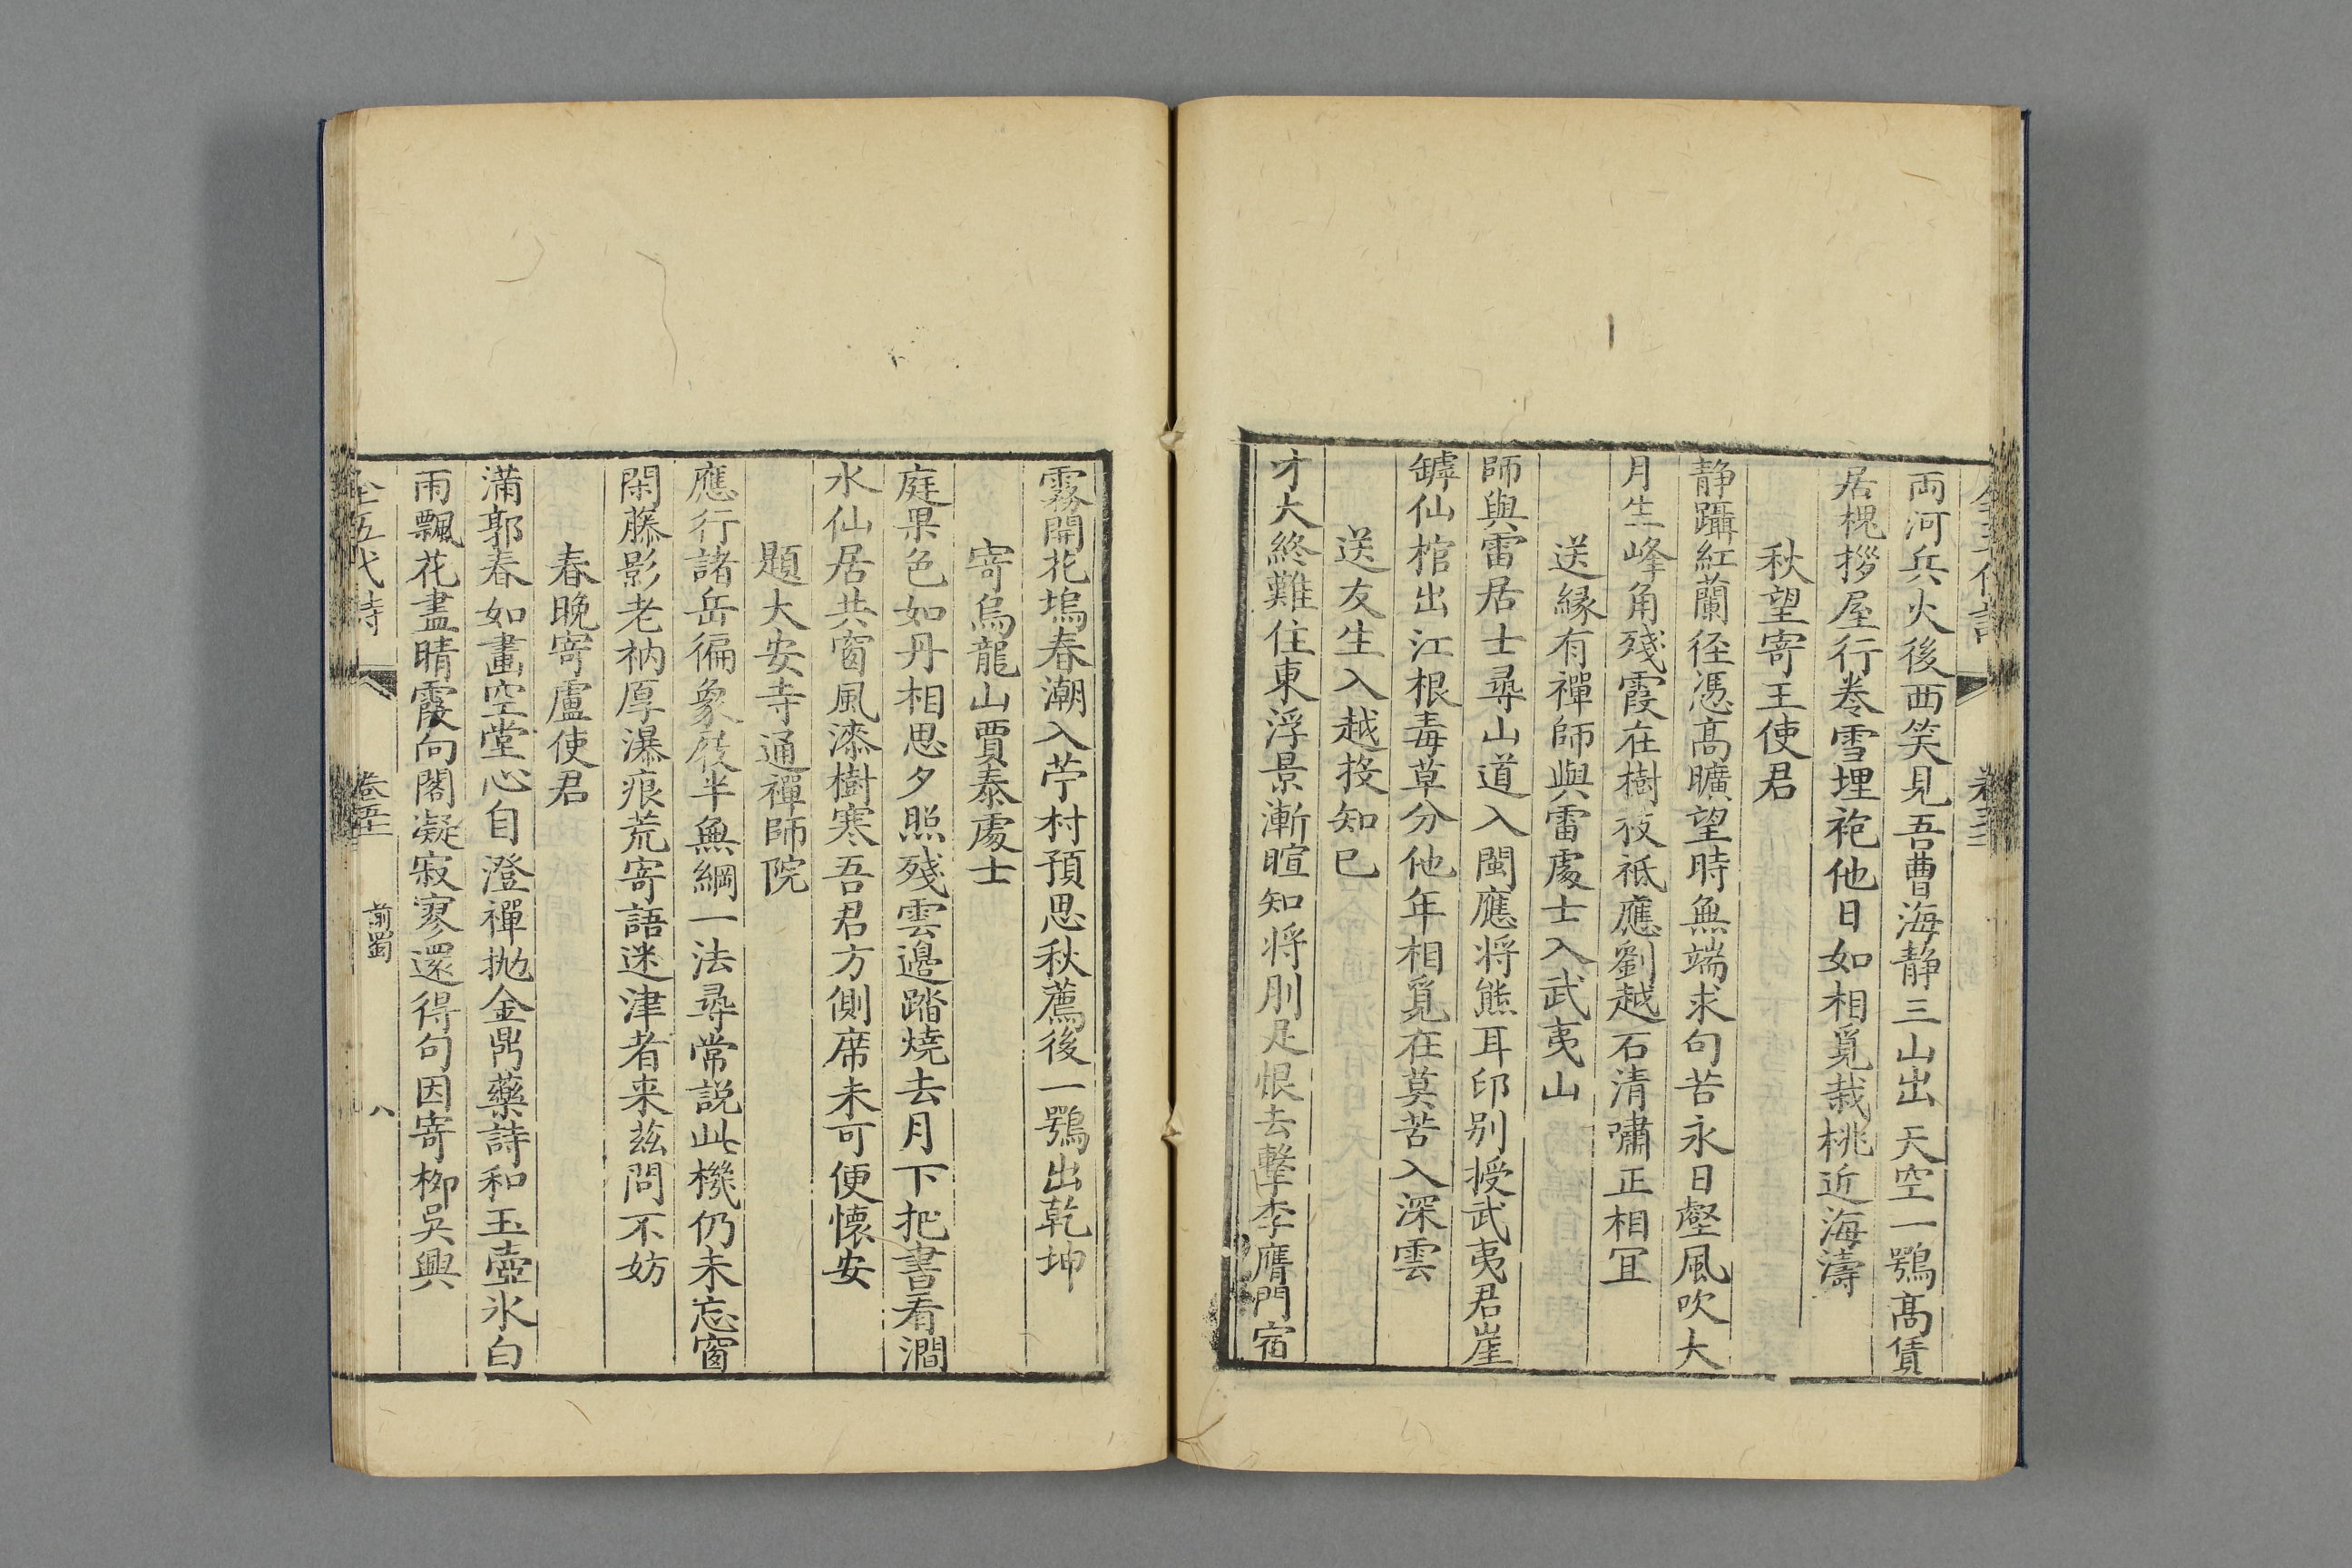 両河兵火後西笑見吾曹海静三山出天空一鶚髙賃
居槐拶屋行卷雪埋袍他日如相覓栽桃近海濤
秋望寄王使君
静躡紅蘭徑憑髙曠望時無端求句苦永日壑風吹大
月生峰角殘霞在樹枝祗應劉越石清嘯正相冝
送縁有禪師與雷處士入武夷山
師與雷居士尋山道入閩應将熊耳印别授武夷君崖
罅仙棺出江根毒草分他年相覓在莫苦入深雲
送友生入越投知己
才大終難住東浮景漸暄知将刖足恨去擊李膺門宿
霧開花塢春潮入苧村預思秋薦後一鶚出乾坤
寄烏龍山賈泰處士
庭果色如丹相思夕照殘雲邉踏燒去月下把書看澗
水仙居共窗風漆樹寒吾君方側席未可便懷安
題大安寺通禪師院
應行諸岳徧象屐半無綱一法尋常説此機仍未忘窗
閑藤影老衲厚瀑痕荒寄語迷津者来兹問不妨
春晚寄盧使君
滿郭春如畫空堂心自澄禪抛金鼎藥詩和玉壺氷白
雨飄花盡晴霞向閣凝寂寥還得句因寄栁吳興
全五代詩 卷五十 前蜀 八